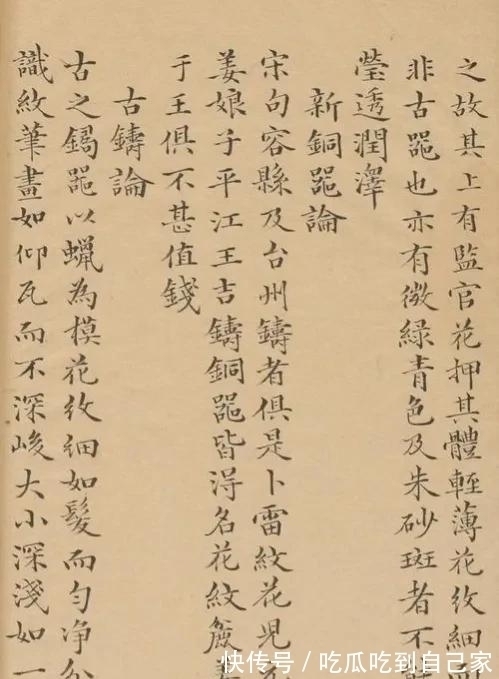 之故其上有監官花押其體輕薄花紋細
非古器也亦有微綠青色及朱砂斑者不
瑩透潤澤
新銅器論
宋句容縣及台州鑄者俱是卜雷紋花兒
姜娘子平江王吉鑄銅器皆得名花紋
于王俱不甚值錢
古鑄論
古之鐲器以蠟為模花紋細如髮而勻净
識紋筆畫如仰瓦而不深峻大小深淺如一
快传号／吃瓜吃到自己家